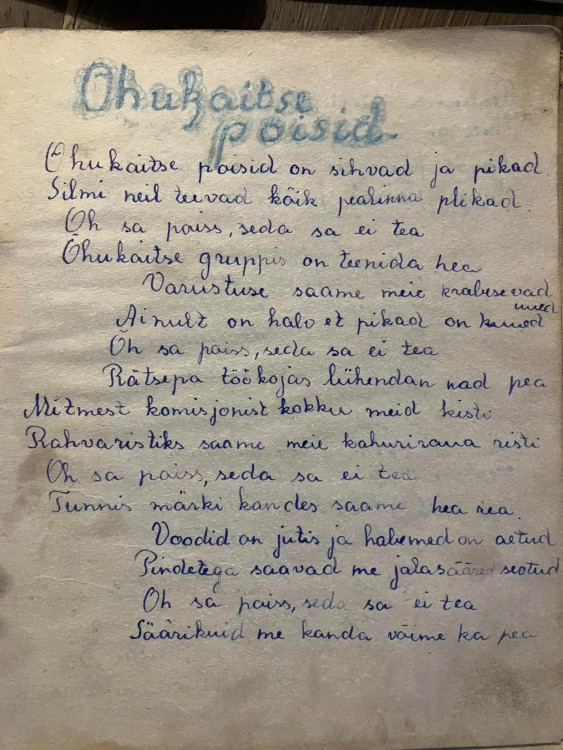 Õhukaitse
poisid.
Õhukaitse poisid on sihvad ja pikad
Silmi neil teevad kõik pealinna plikad.
Oh sa poiss, seda sa ei tea
Õhukaitse gruppis on teenida hea
Varustuse saame meie krabisevad
uued
Ainult on halv et pikad on kuued
Oh sa poiss, seda sa ei tea
Rätsepa töökojas lühendan nad pea
Mitmest komisjonist kokku meid kisti
Rahvaristiks saame meie kahuriraua risti
Oh sa poiss, seda sa ei tea
Tunnis märki kandes saame hea rea.
Voodid on jutis ja habemed on aetud
Pindetega saavad me jalasääred seotud
Oh sa poiss, seda sa ei tea
Säärikuid me kanda võime ka pea